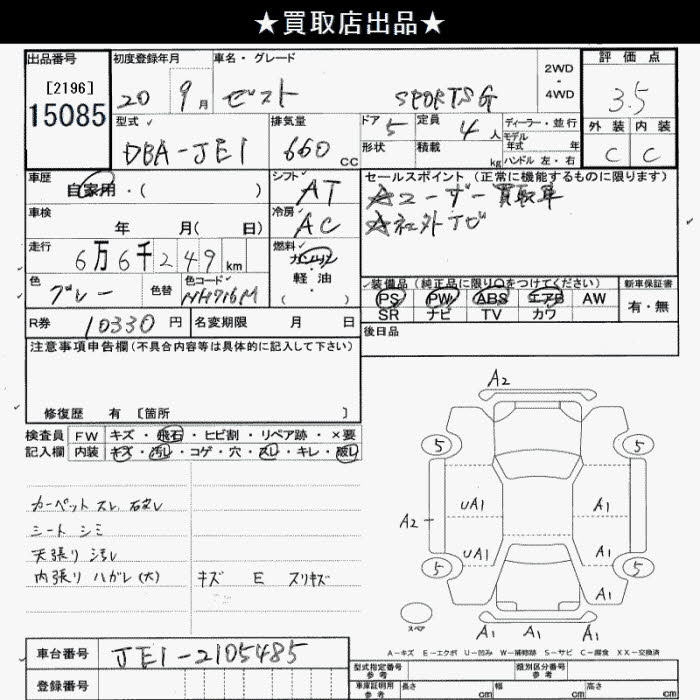 ★買取店出品★
出品番号
[2196]
15085
初度登録年月
20 9 月
車名・グレード
ゼスト SPORTS G
2WD
・
4WD
評価点
3.5
外装 内装
C C
型式
DBA-JE1
排気量
660 CC
ドア 5
形状
定員 4 人
積載 kg
ディーラー・並行
モデル
年式 年
ハンドル 左・右
車歴
自家用・( )
シフト
AT
車検
年 月( 日)
冷房
AC
走行
6万6千249 km
燃料
ガソリン
・
軽油
( )
色
グレー
色替
色コード
NH716M
R券 10330 円
名変期限 月 日
セールスポイント(正常に機能するものに限ります)
☆ユーザー買取車
☆社外ナビ
装備品(純正品に限り○をつけてください)
PS PW ABS エアB AW
SR ナビ TV カワ
新車保証書
有・無
後日品
注意事項申告欄(不具合内容等は具体的に記入して下さい)
修復歴 有 [箇所 ]
検査員 FW キズ・飛石・ヒビ割・リペア跡・×要
記入欄 内装 キズ・汚レ・コゲ・穴・スレ・キレ・破レ
カーペット スレ 破レ
シート シミ
天張り 汚レ
内張り ハガレ(大) キズ E スリキズ
A2
5 5
UA1 A1
A2
UA1 A1
5 5
A1
スペア
A1 A1 A1
A-キズ E-エクボ U-凹み W-補修跡 S-サビ C-腐食 XX-交換済
車台番号 JE1-2105485
登録番号
型式指定番号
参考
類別区分番号
参考
車庫証明用
参考
長さ cm 幅 cm 高さ cm